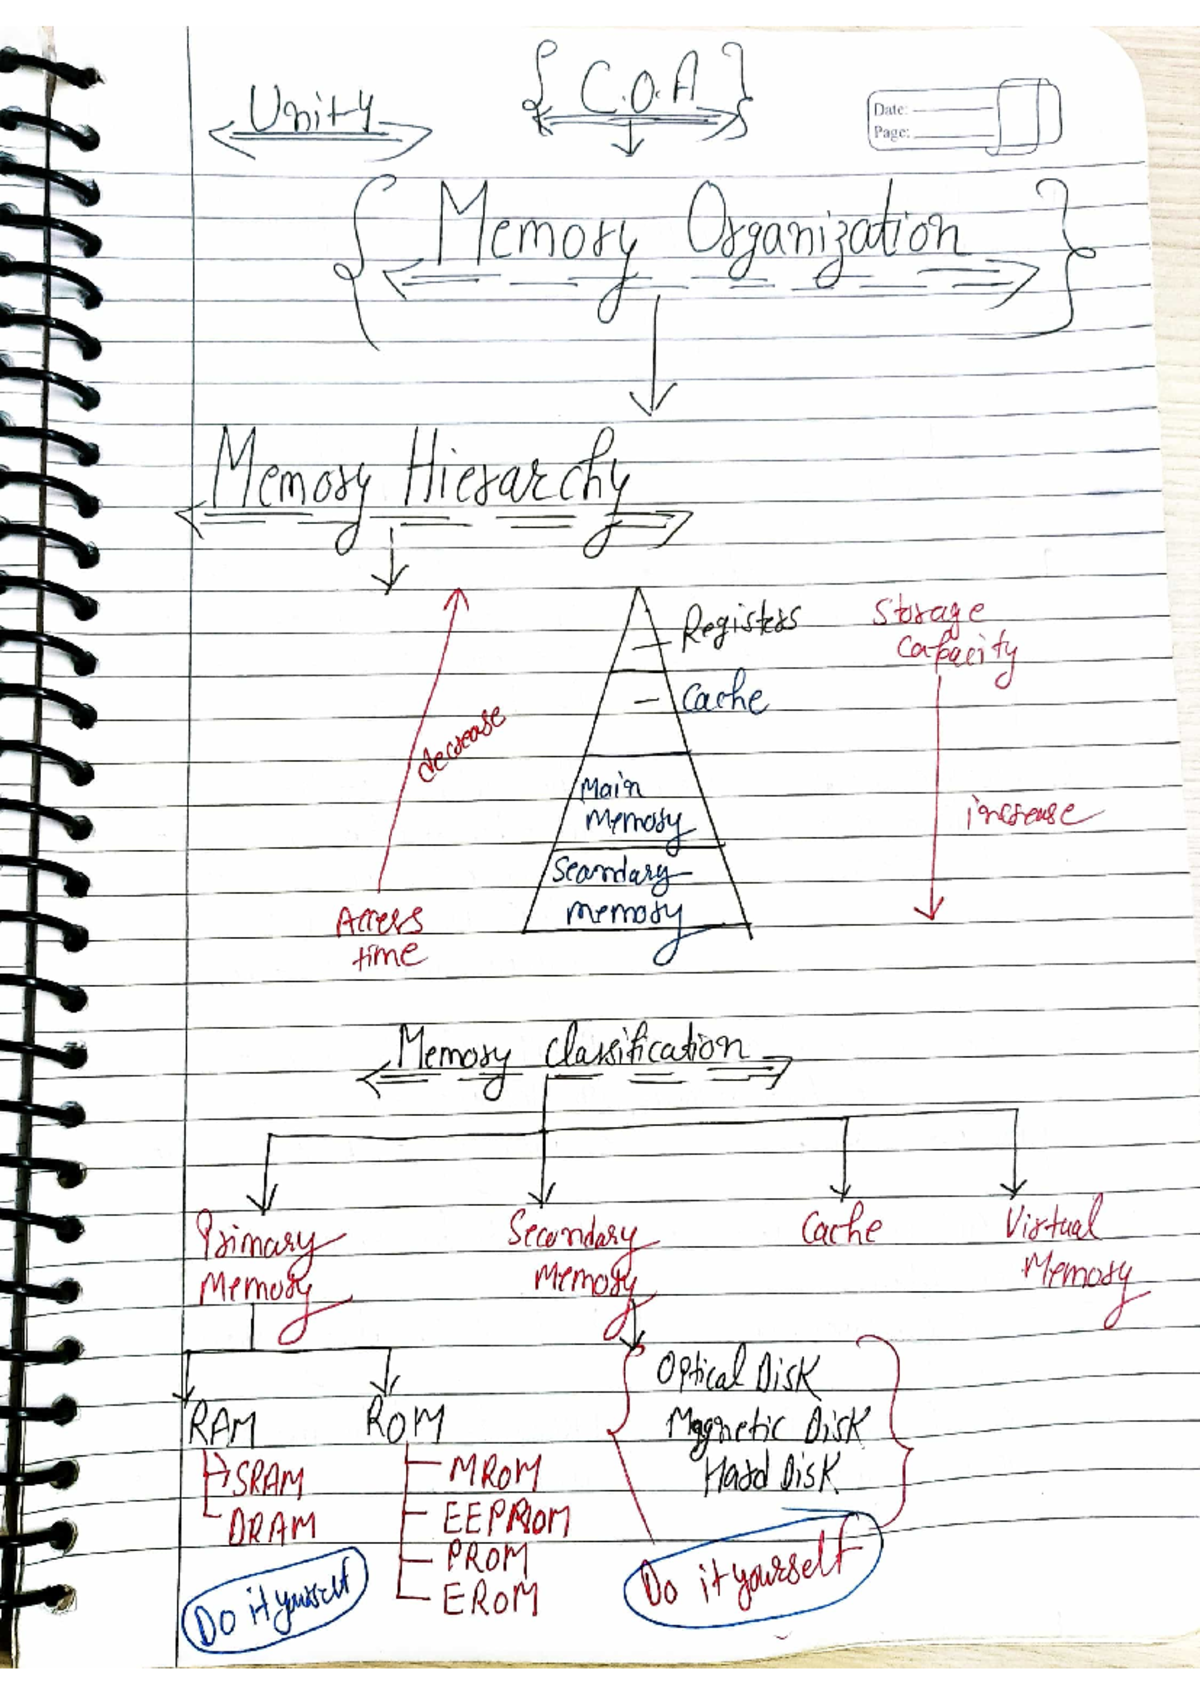 Unity
{ C.O.A }
Date:
Page:
{ Memory Organization }
Memory Hierarchy
Registers
Storage
Capacity
Cache
decrease
Main
Memory
increase
Secondary
memory
Access
time
Memory Classification
Primary
Memory
Secondary
Memory
Cache
Virtual
Memory
Optical Disk
Magnetic Disk
Hard Disk
RAM
ROM
SRAM
DRAM
MROM
EEPROM
PROM
EROM
Do it yourself
Do it yourself